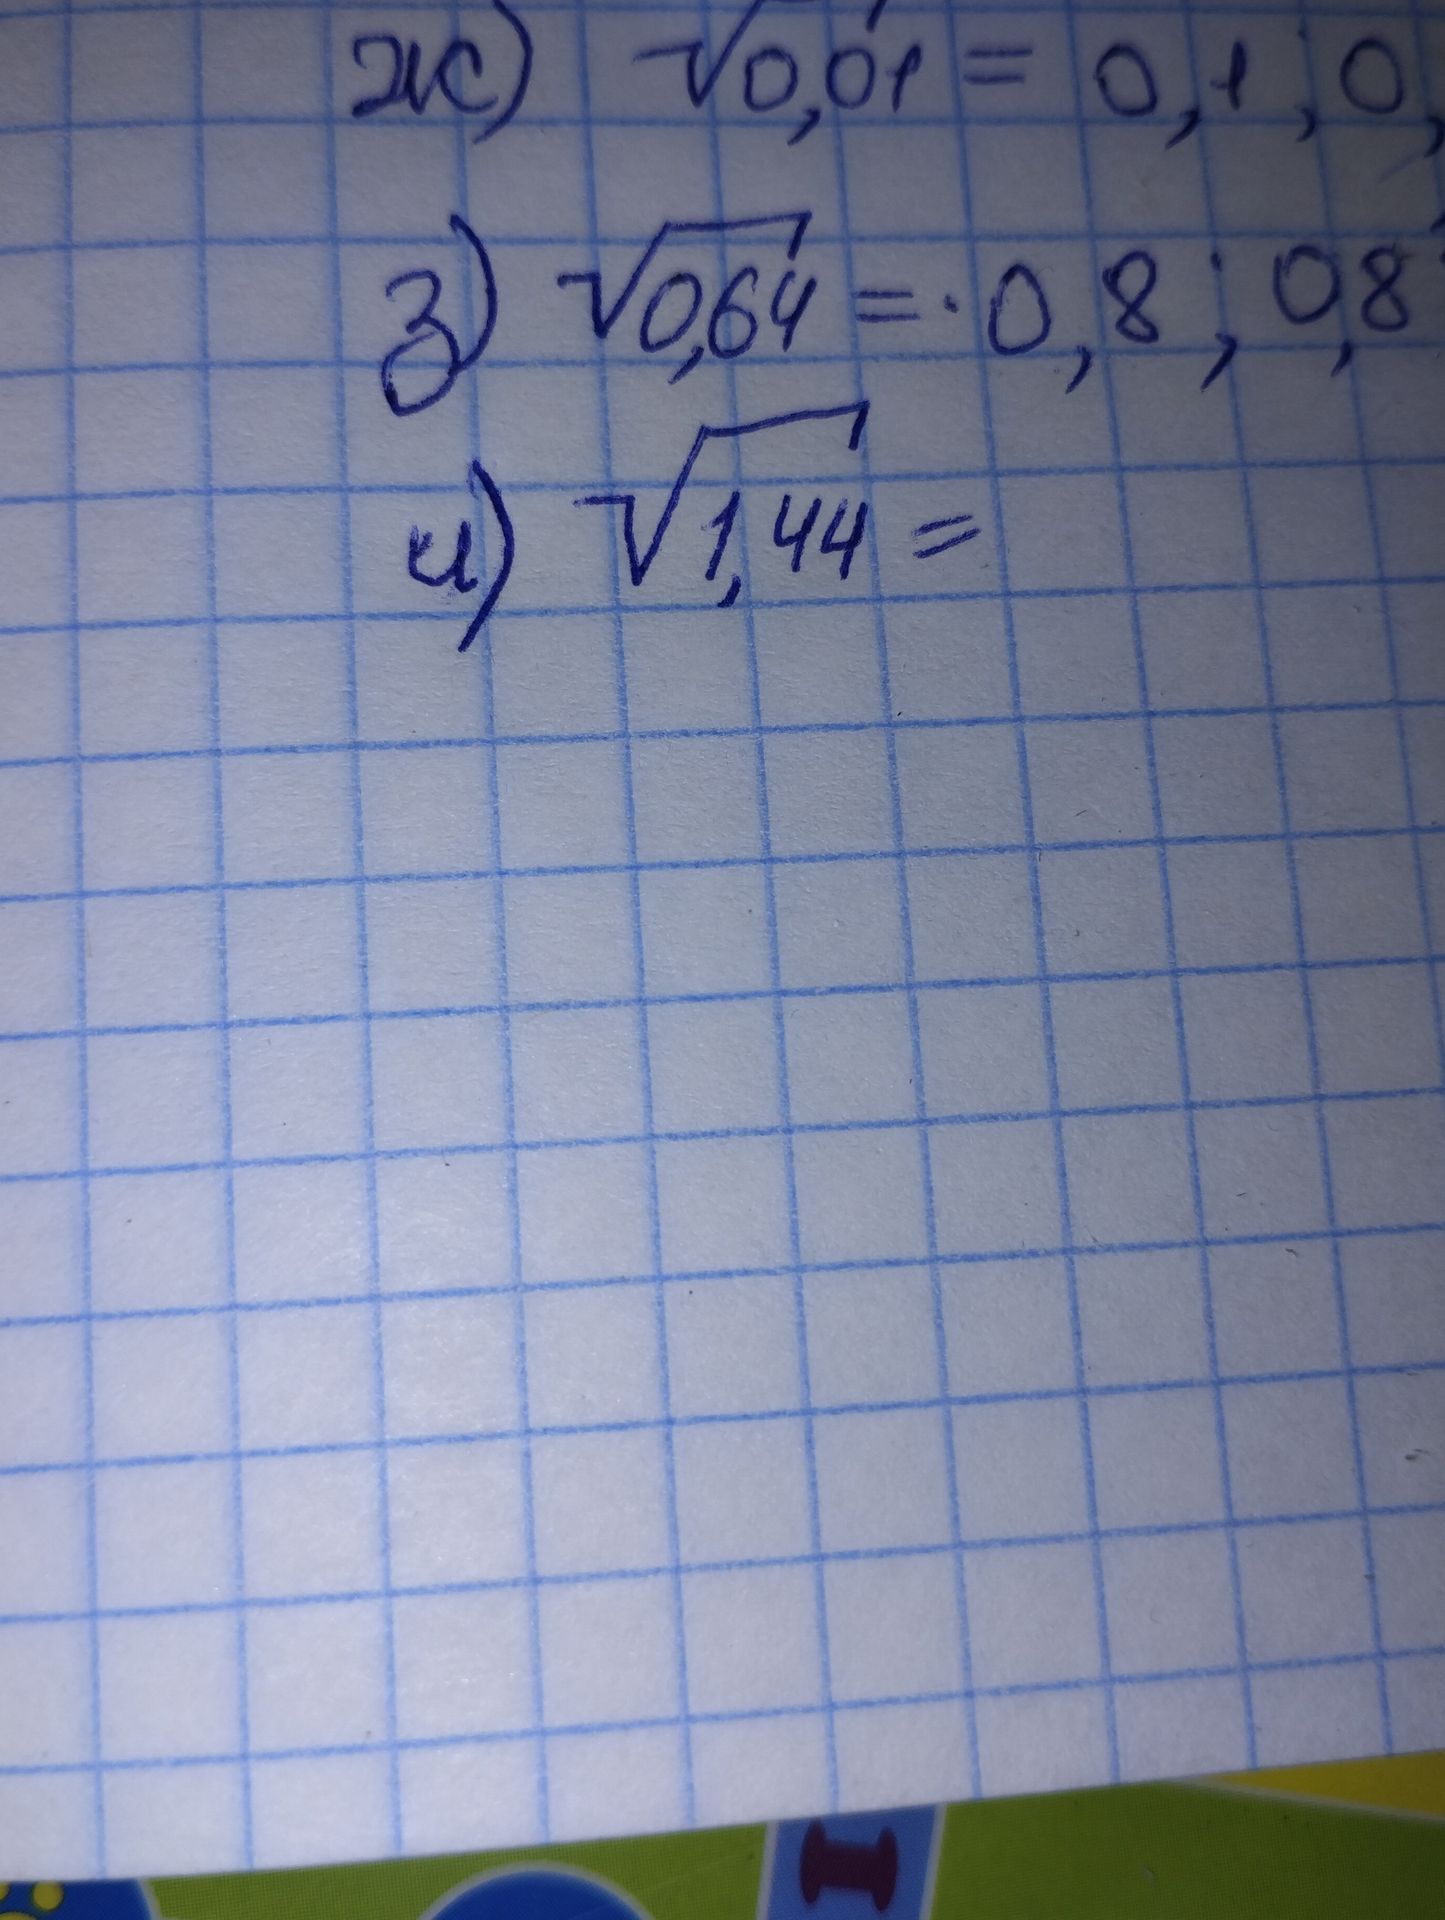 ж) √0,01 = 0,1; 0,
з) √0,64 = 0,8; 0,8²
и) √1,44 =